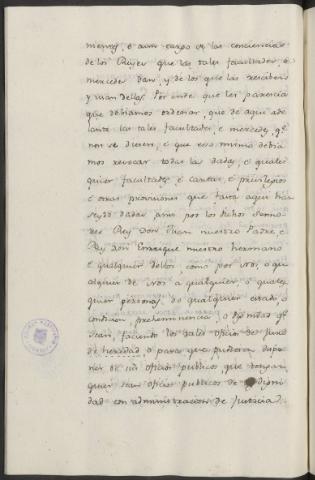 mientos, e aun cargo de las conciencias
de los Reyes que las tales facultades, é
mercedes dan, y de los que las resciben
y usan dellas. Por ende que les parescia
que debiamos ordenar, que de aqui ade
lante las tales facultades, e mercedes, qe.
non se diesen, é que eso mismo debia
mos revocar todas las dadas, é quales
quier facultades, é cartas, é privilegios
é otras provisiones que fasta aqui han
seydo dadas assi por los dichos Seño
res Rey Don Juan nuestro Padre, e
Rey Don Enrrique nuestro hermano
é qualquier dellos, como por nos, ó qual
quier de nos á qualquier, ó quales
quier personas de qualquier estado, ó
condicion, preheminencia, o dignidad qe.
sean, faciendo los tales oficios de juro
de heredad, o para que pudiesen dispo
ner de sus oficios publicos, que tengan,
quier sean oficios publicos de digni
dad con administracion de Justicia,